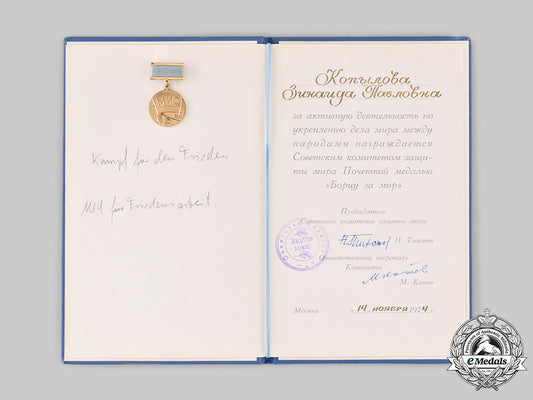 МИР
Kampf für den Frieden
für Friedensarbeit
Копылова
Зинаида Павловна
за активную деятельность по
укреплению дела мира между
народами награждается
Советским комитетом защи-
ты мира Почетной медалью
«Борцу за мир»
Председатель
Советского комитета защиты мира
Н. Тихонов
Ответственный секретарь
Комитета
М. Котов
ЗАЩИТЫ
МИРА
Москва
«14» ноября 1974 г.
eMedals